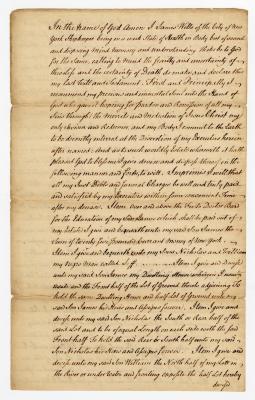 In the Name of God Amen I James Wells of the City of New
York Shopkeeper being in a weak State of Health in Body but of sound
and disposing Mind Memory and Understanding thanks be to God
for the Same, calling to mind the frailty and uncertainty of
this life and the certainty of Death do make and declare this
my last Will and testament. First and Principally I
recommend my precious and immortal Soul into the Hand of
God who gave it hoping for Pardon and Remission of all my
Sins through the Merits and Mediation of Jesus Christ my
only Saviour and Redeemer, and my Body I commit to the Earth
to be decently interred at the Discretion of my Executors herein
after named. And as to such worldly Estate wherewith it hath
pleased God to bless me I give devise and dispose thereof in the
following manner and form, to wit. Imprimis I will that
all my Just Debts and funeral Charges be well and truly paid
and satisfied by my Executors within some convenient time
after my decease. Item
for the Education of my Son James which shall be paid out of
my Estate I give and bequeath unto my said Son James the
Sum of twenty five Pounds Current money of New York.
Item I give and bequeath unto my Sons Nicholas and William
my Negro Man called Item I give and devise
unto my said Son James my Dwelling House wherein I now
and the Front half of the Lot of Ground thereto adjoining To
hold the same Dwelling House and half Lot of Ground unto my
said Son James his Heirs and Assigns forever. Item I give and
devise unto my said Son Nicholas the South or Rear half of the
said Lot and to be of equal Length on each side with the front
Front half To hold the said Rear or South half unto my said
Son Nicholas his Heirs and Assigns forever. Item I give and
devise unto my said Son William the North half of my Lot on
the River or under Water and fronting opposite the half Lot hereby
devised